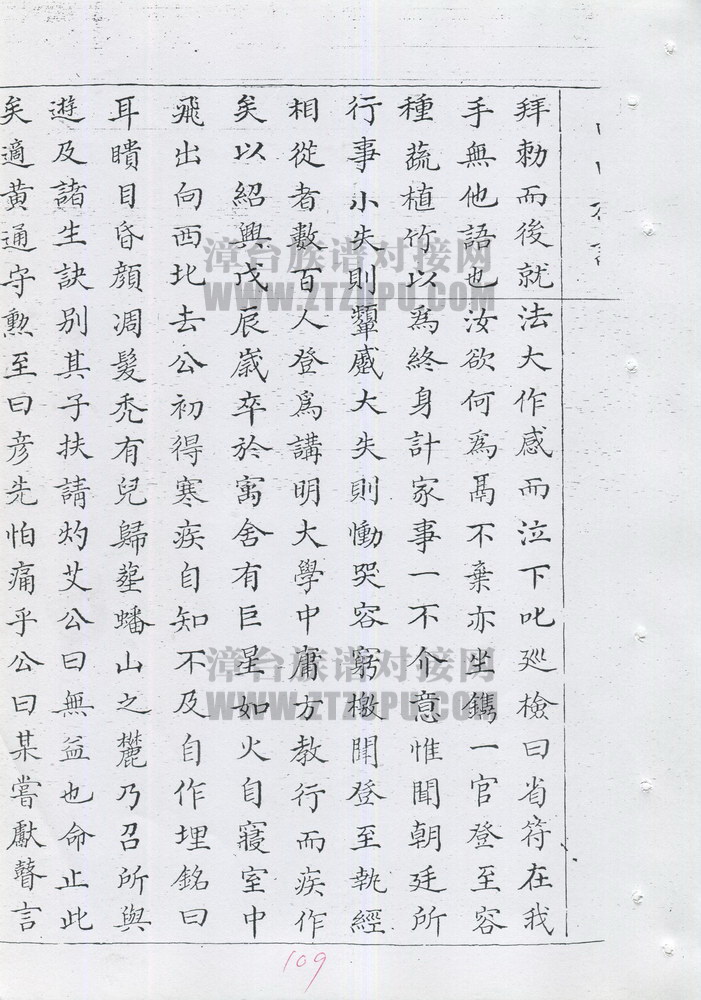 拜勅而後就法大作感而泣下叱廵檢曰省符在我
手無他語也汝欲何爲鬲不棄亦坐鐫一官登至容
種蔬植竹以爲終身計家事一不介意惟聞朝廷所
行事小失則顰戚大失則慟哭容窮檄聞登至執經
相從者數百人登爲講明大學中庸方教行而疾作
矣以紹興戊辰歲卒於寓舍有巨星如火自寢室中
飛出向西北去公初得寒疾自知不及自作埋銘曰
耳瞶目昏顔凋髮禿有兒歸塟蟠山之麓乃召所與
遊及諸生訣别其子扶請灼艾公曰無益也命止此
矣適黃通守勲至曰彦先怕痛乎公曰某嘗獻瞽言
漳台族谱对接网
WWW.ZTZUPU.COM
漳台族谱对接网
WWW.ZTZUPU.COM
109